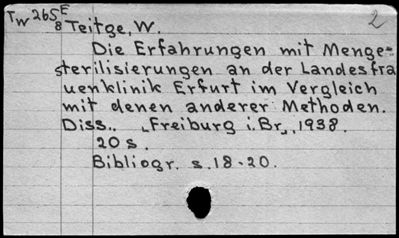 Tw 265 E 2
8 Teitge, W.
Die Erfahrungen mit Menge-
sterilisierungen an der Landesfra
uenklinik Erfurt im Vergleich
mit denen anderer Methoden.
Diss.. „Freiburg i. Br„, 1938.
20 s.
Bibliogr. s. 18-20.